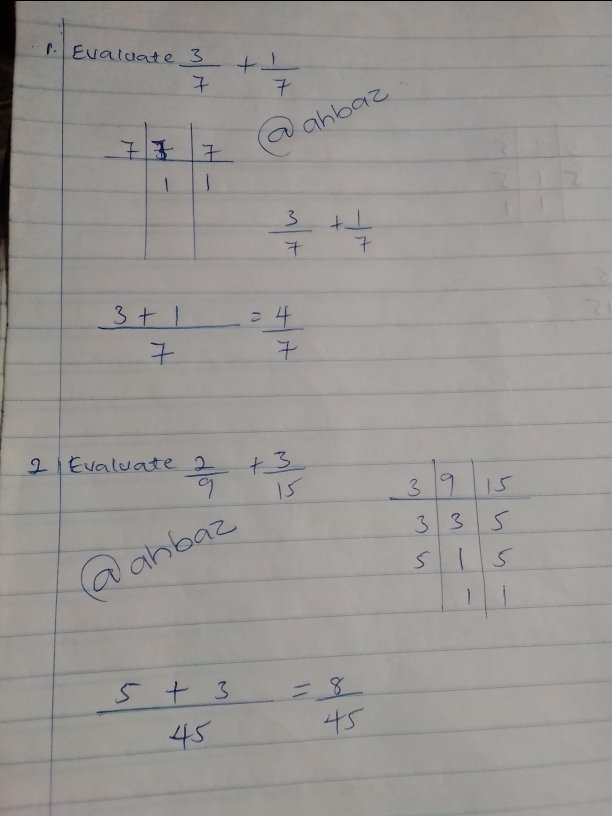 1. Evaluate 3/7 + 1/7
@ahbaz
7 | 7 | 7
1 | 1
3/7 + 1/7
3 + 1 / 7 = 4/7
2 Evaluate 2/9 + 3/15
3 | 9 | 15
3 | 3 | 5
5 | 1 | 5
1 | 1
@ahbaz
5 + 3 / 45 = 8/45